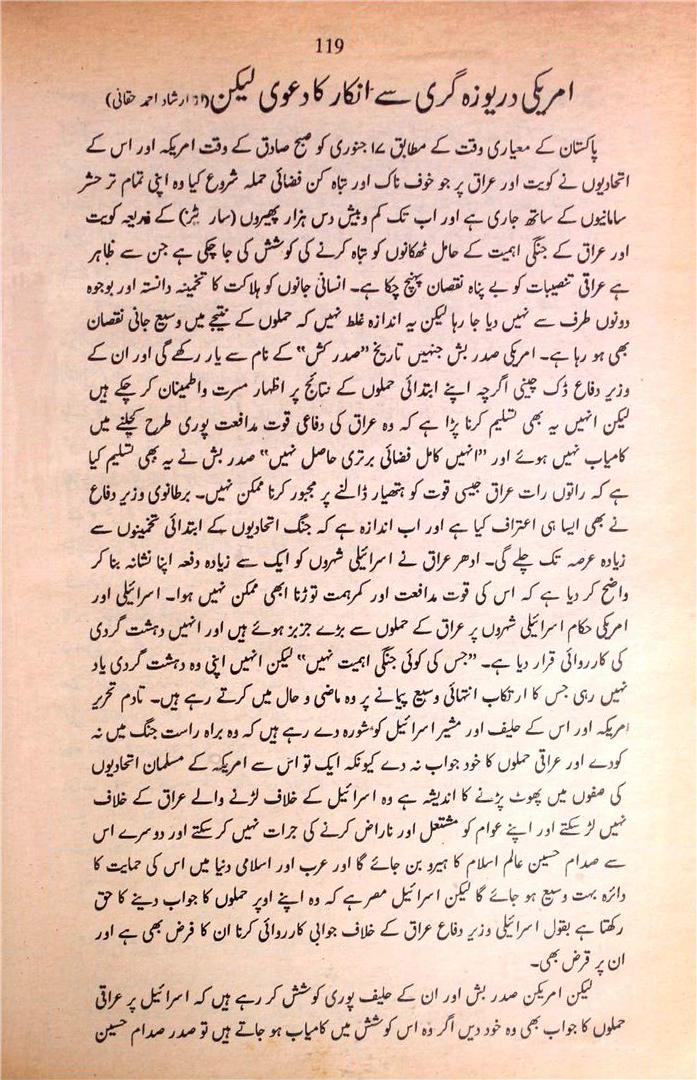 119
امریکی دریوزہ گری سے انکار کا دعویٰ لیکن (از ارشاد احمد حقانی)
پاکستان کے معیاری وقت کے مطابق ۱۷ جنوری کو صبح صادق کے وقت امریکہ اور اس کے
اتحادیوں نے کویت اور عراق پر جو خوف ناک اور تباہ کن فضائی حملہ شروع کیا وہ اپنی تمام تر حشر
سامانیوں کے ساتھ جاری ہے اور اب تک کم و بیش دس ہزار پھیروں (سارٹیز) کے ذریعہ کویت
اور عراق کے جنگی اہمیت کے حامل ٹھکانوں کو تباہ کرنے کی کوشش کی جا چکی ہے جن سے ظاہر
ہے عراقی تنصیبات کو بے پناہ نقصان پہنچ چکا ہے۔ انسانی جانوں کو ہلاکت کا تخمینہ دانستہ اور بوجوہ
دونوں طرف سے نہیں دیا جا رہا لیکن یہ اندازہ غلط نہیں کہ حملوں کے نتیجے میں وسیع جانی نقصان
بھی ہو رہا ہے۔ امریکی صدر بش جنہیں تاریخ ”صدر کش“ کے نام سے یار رکھے گی اور ان کے
وزیر دفاع ڈک چینی اگرچہ اپنے ابتدائی حملوں کے نتائج پر اظہار مسرت واطمینان کر چکے ہیں
لیکن انہیں یہ بھی تسلیم کرنا پڑا ہے کہ وہ عراق کی دفاعی قوت مدافعت پوری طرح کچلنے میں
کامیاب نہیں ہوئے اور ”انہیں کامل فضائی برتری حاصل نہیں“ صدر بش نے یہ بھی تسلیم کیا
ہے کہ راتوں رات عراق جیسی قوت کو ہتھیار ڈالنے پر مجبور کرنا ممکن نہیں۔ برطانوی وزیر دفاع
نے بھی ایسا ہی اعتراف کیا ہے اور اب اندازہ ہے کہ جنگ اتحادیوں کے ابتدائی تخمینوں سے
زیادہ عرصہ تک چلے گی۔ ادھر عراق نے اسرائیلی شہروں کو ایک سے زیادہ دفعہ اپنا نشانہ بنا کر
واضح کر دیا ہے کہ اس کی قوت مدافعت اور کمرہمت توڑنا ابھی ممکن نہیں ہوا۔ اسرائیلی اور
امریکی حکام اسرائیلی شہروں پر عراق کے حملوں سے بڑے جزبز ہوئے ہیں اور انہیں دہشت گردی
کی کارروائی قرار دیا ہے۔ ”جس کی کوئی جنگی اہمیت نہیں“ لیکن انہیں اپنی وہ دہشت گردی یاد
نہیں رہی جس کا ارتکاب انتہائی وسیع پیمانے پر وہ ماضی و حال میں کرتے رہے ہیں۔ تادم تحریر
امریکہ اور اس کے حلیف اور مشیر اسرائیل کو مشورہ دے رہے ہیں کہ وہ براہ راست جنگ میں نہ
کودے اور عراقی حملوں کا خود جواب نہ دے کیونکہ ایک تو اس سے امریکہ کے مسلمان اتحادیوں
کی صفوں میں پھوٹ پڑنے کا اندیشہ ہے وہ اسرائیل کے خلاف لڑنے والے عراق کے خلاف
نہیں لڑ سکتے اور اپنے عوام کو مشتعل اور ناراض کرنے کی جرات نہیں کر سکتے اور دوسرے اس
سے صدام حسین عالم اسلام کا ہیرو بن جائے گا اور عرب اور اسلامی دنیا میں اس کی حمایت کا
دائرہ بہت وسیع ہو جائے گا لیکن اسرائیل مصر ہے کہ وہ اپنے اوپر حملوں کا جواب دینے کا حق
رکھتا ہے بقول اسرائیلی وزیر دفاع عراق کے خلاف جوابی کارروائی کرنا ان کا فرض بھی ہے اور
ان پر قرض بھی۔
لیکن امریکن صدر بش اور ان کے حلیف پوری کوشش کر رہے ہیں کہ اسرائیل پر عراقی
حملوں کا جواب بھی وہ خود دیں اگر وہ اس کوشش میں کامیاب ہو جاتے ہیں تو صدر صدام حسین